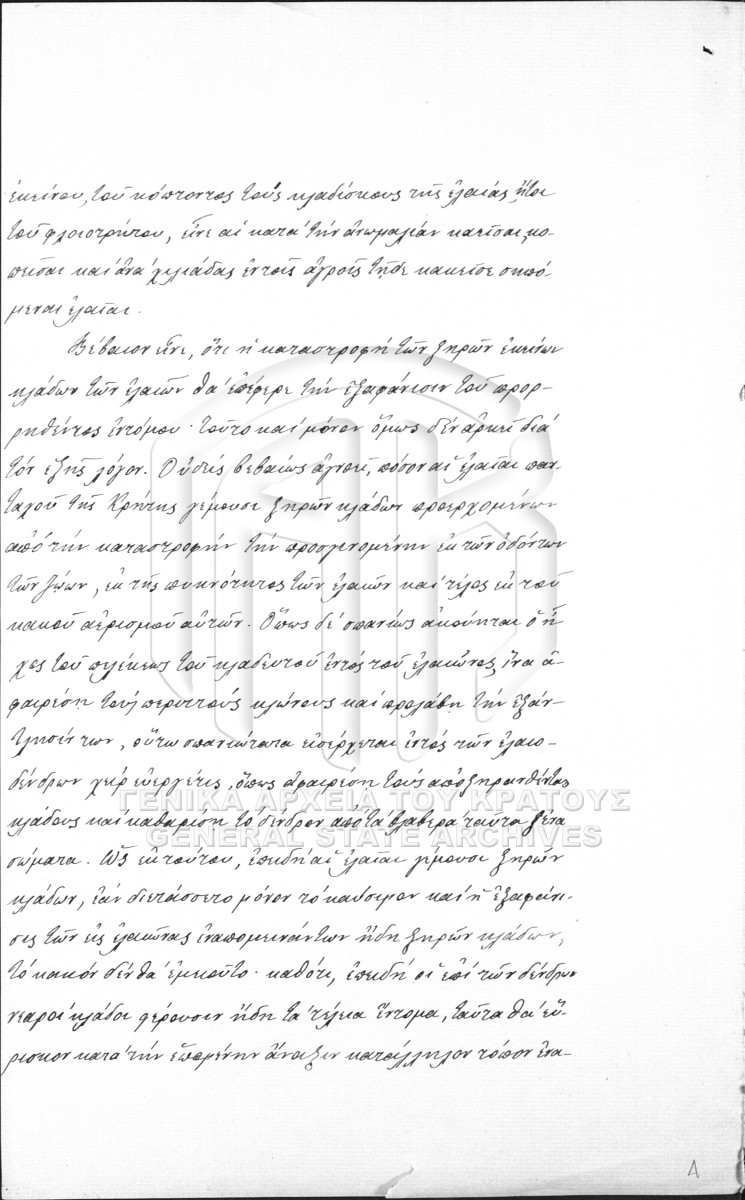 ἐκείνου, τοῦ κόπτοντος τοὺς κλαδίσκους τῆς ἐλαίας ἤτοι
τοῦ φλοιοτρήτου, εἶνε αἱ κατὰ τὴν ἀνωμαλίαν καεῖσαι, κο-
πεῖσαι καὶ ἀνὰ χιλιάδας ἐν τοῖς ἀγροῖς τῇδε κακεῖσε σηπό-
μεναι ἐλαῖαι.
Βέβαιον εἶνε, ὅτι ἡ καταστροφὴ τῶν ξηρῶν ἐκείνων
κλάδων τῶν ἐλαιῶν θὰ ἐπέφερε τὴν ἐξαφάνισιν τοῦ προρ-
ρηθέντος ἐντόμου· τοῦτο καὶ μόνον ὅμως δὲν ἀρκεῖ διὰ
τὸν ἑξῆς λόγον. Οὐδεὶς βεβαίως ἀγνοεῖ, πόσον αἱ ἐλαῖαι παν-
ταχοῦ τῆς Κρήτης γέμουσι ξηρῶν κλάδων προερχομένων
ἀπὸ τὴν καταστροφὴν τὴν προσγινομένην ἐκ τῶν ὀδόντων
τῶν ζῴων, ἐκ τῆς πυκνότητος τῶν ἐλαιῶν καὶ τέλος ἐκ τοῦ
κακοῦ ἀερισμοῦ αὐτῶν. Ὅπως δὲ σπανίως ἀκούηται ὁ ἦ-
χος τοῦ πελέκεως τοῦ κλαδευτοῦ ἐντὸς τοῦ ἐλαιῶνος, ἵνα ἀ-
φαιρέσῃ τοὺς περιττοὺς κλώνους καὶ προλάβῃ τὴν ἐξάν-
τλησίν των, οὕτω σπανιώτατα εἰσέρχεται ἐντὸς τῶν ἐλαιο-
δένδρων χεὶρ εὐεργέτις, ὅπως ἀφαιρέσῃ τοὺς ἀποξηρανθέντας
κλάδους καὶ καθαρίσῃ τὸ δένδρον ἀπὸ τὰ βλαβερὰ ταῦτα ξένα
σώματα. Ὡς ἐκ τούτου, ἐπειδὴ αἱ ἐλαῖαι γέμουσι ξηρῶν
κλάδων, ἐὰν διετάσσετο μόνον τὸ καύσιμον καὶ ἡ ἐξαφάνι-
σις τῶν εἰς ἐλαιῶνας ἐναπομεινάντων ἤδη ξηρῶν κλάδων,
τὸ κακὸν δὲν θὰ ἐμειοῦτο· καθότι, ἐπειδὴ οἱ ἐπὶ τῶν δένδρων
νεαροὶ κλάδοι φέρουσιν ἤδη τὰ τέλεια ἔντομα, ταῦτα θὰ εὕ-
ρισκον κατὰ τὴν ἑπομένην ἄνοιξιν κατάλληλον τόπον ἐνα-
ΓΕΝΙΚΑ ΑΡΧΕΙΑ ΤΟΥ ΚΡΑΤΟΥΣ
GENERAL STATE ARCHIVES